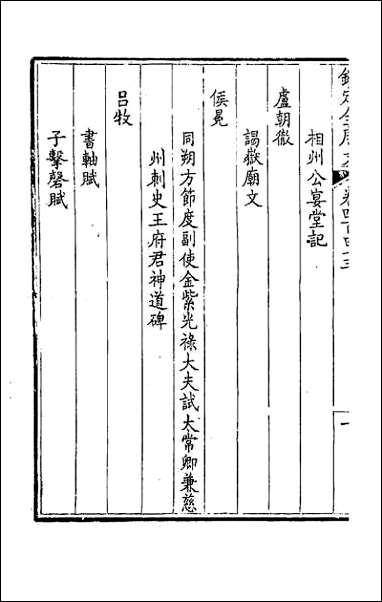 欽定全唐文 卷四百四十三 一
相州公宴堂記
盧朝徹
謁嶽廟文
侯冕
同朔方節度副使金紫光祿大夫試太常卿兼慈
州刺史王府君神道碑
呂牧
書軸賦
子擊磬賦